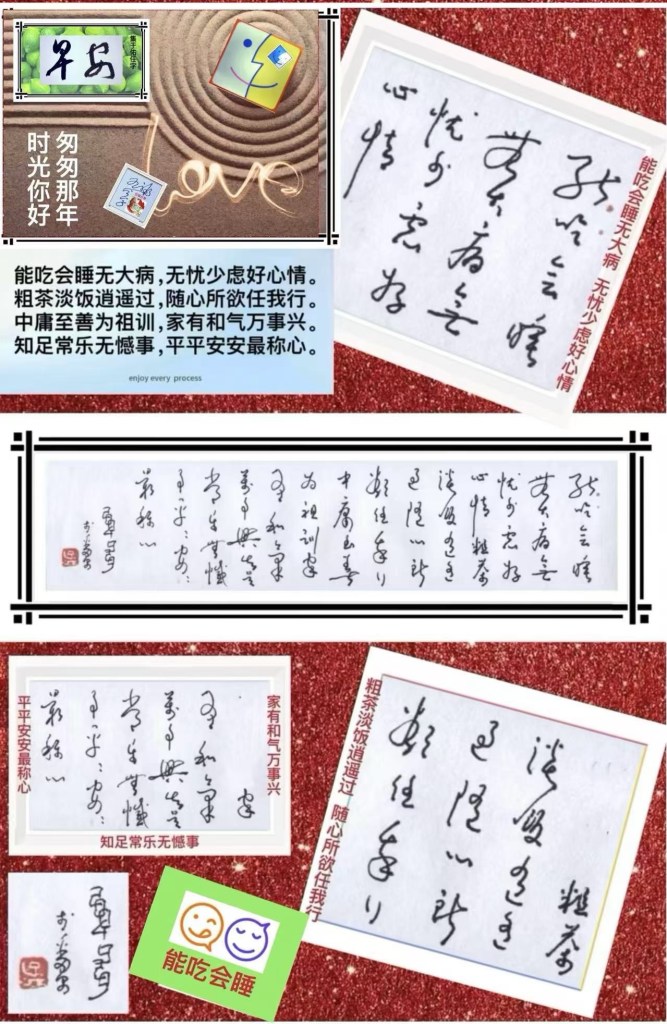 早安
集于佑任字
匆匆那年
时光你好
Love
能吃会睡无大病,无忧少虑好心情。
粗茶淡饭逍遥过,随心所欲任我行。
中庸至善为祖训,家有和气万事兴。
知足常乐无憾事,平平安安最称心。
enjoy every process
能吃会睡
无大病无
忧少虑好
心情
能吃会睡无大病 无忧少虑好心情
能吃会睡
无大病无
忧少虑好
心情粗茶
淡饭逍遥
过随心所
欲任我行
中庸至善
为祖训家
有和气
万事兴知足
常乐无憾
事平平安安
最称心
家有和气万事兴
家
有和气
万事兴知足
常乐无憾
事平平安安
最称心
平平安安最称心
知足常乐无憾事
粗茶淡饭逍遥过 随心所欲任我行
粗茶
淡饭逍遥
过随心所
欲任我行
能吃会睡